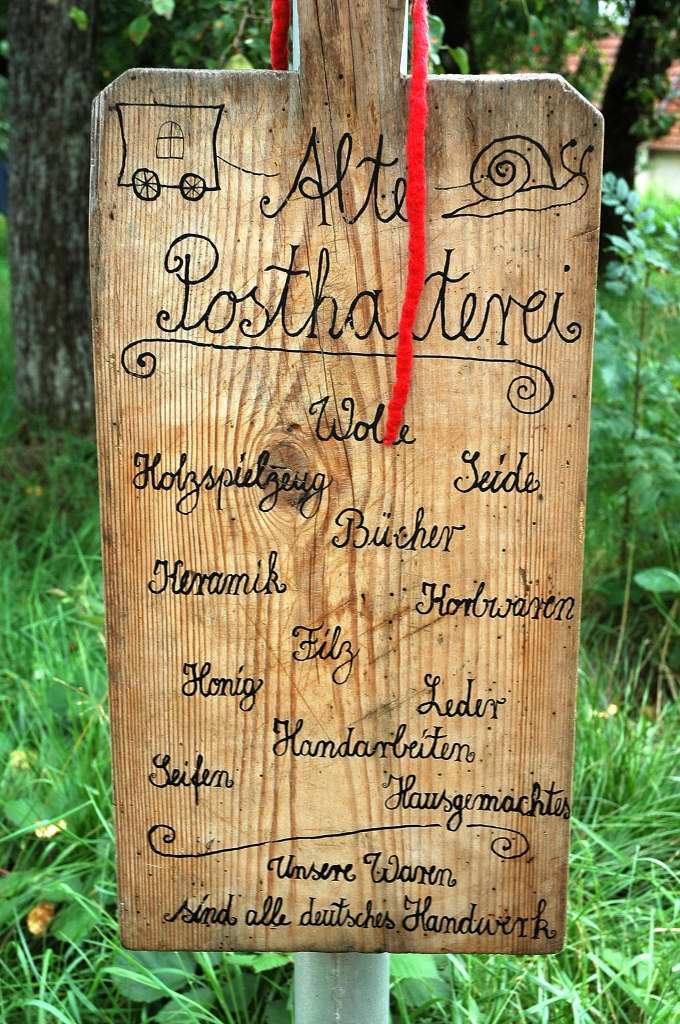 Alte
Posthalterei
Wolle
Holzspielzeug Seide
Bücher
Keramik
Korbwaren
Filz
Honig
Leder
Handarbeiten
Seifen
Hausgemachtes
Unsere Waren
sind alle deutsches Handwerk